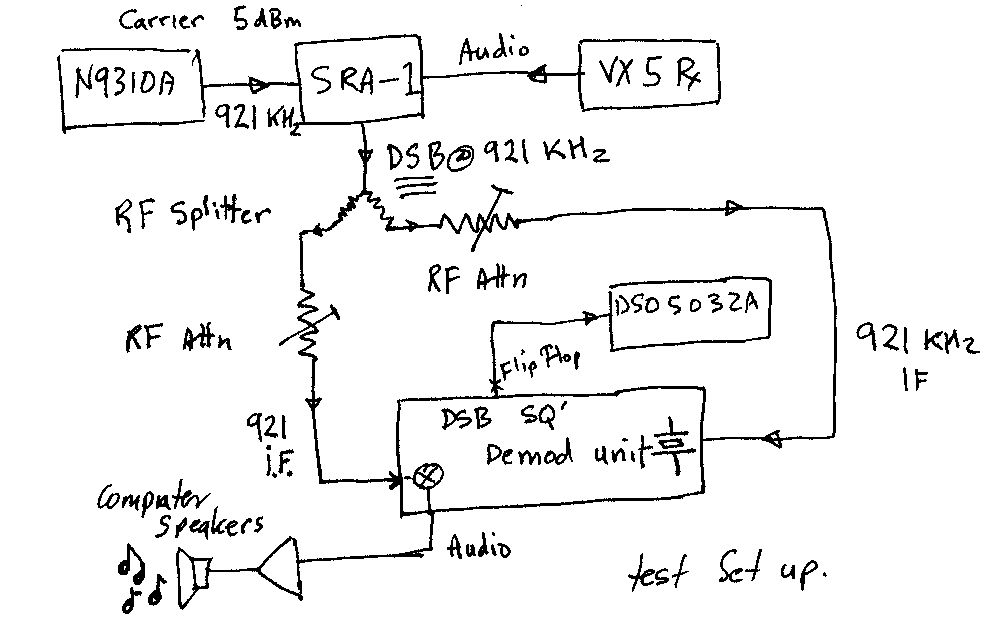 Carrier 5 dBm
N9310A
SRA-1
Audio
VX 5 Rx
921 KHz
DSB @ 921 KHz
RF Splitter
RF Attn
DSO5032A
RF Attn
Flip Flop
921 KHz
IF
921
i.F.
DSB SQ'
Demod unit
Computer
Speakers
Audio
test Set up.